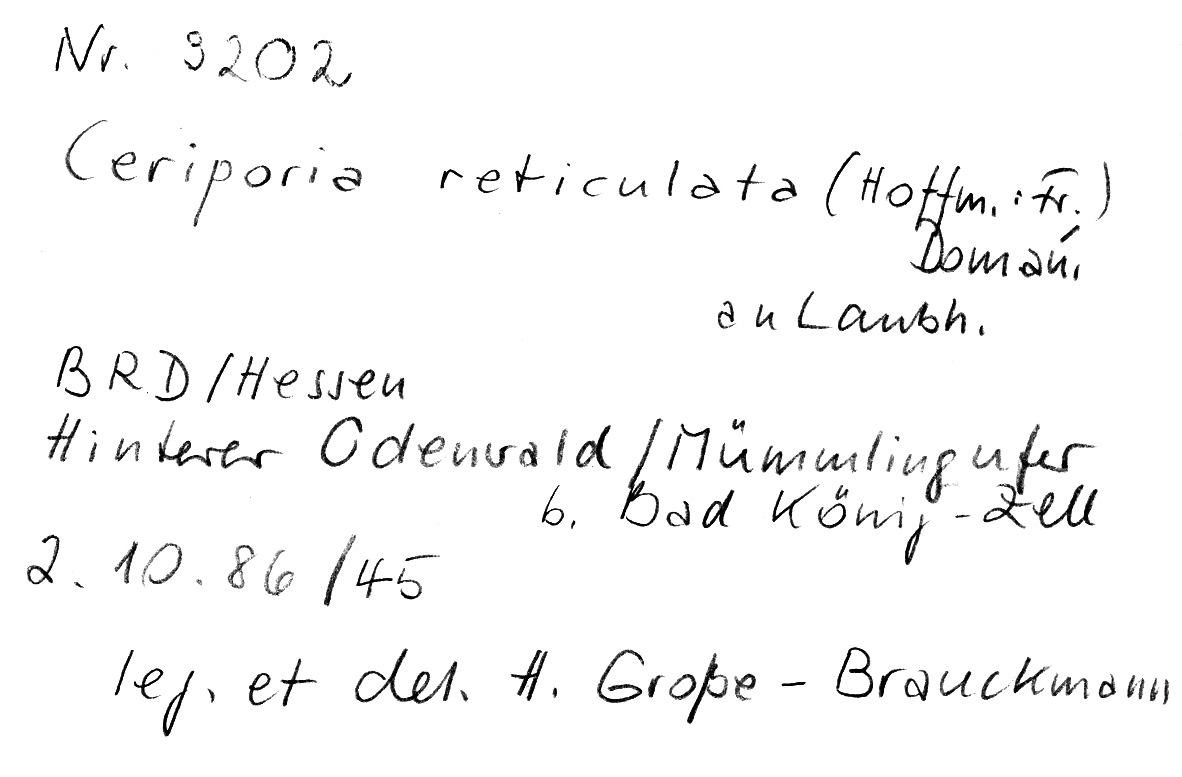 Nr. 9202
Ceriporia reticulata (Hoffm. : Fr.)
Domań.
an Laubh.
BRD/Hessen
Hinterer Odenwald/Mümmlingufer
b. Bad König-Zell
2. 10. 86/45
leg. et det. H. Große-Brauckmann